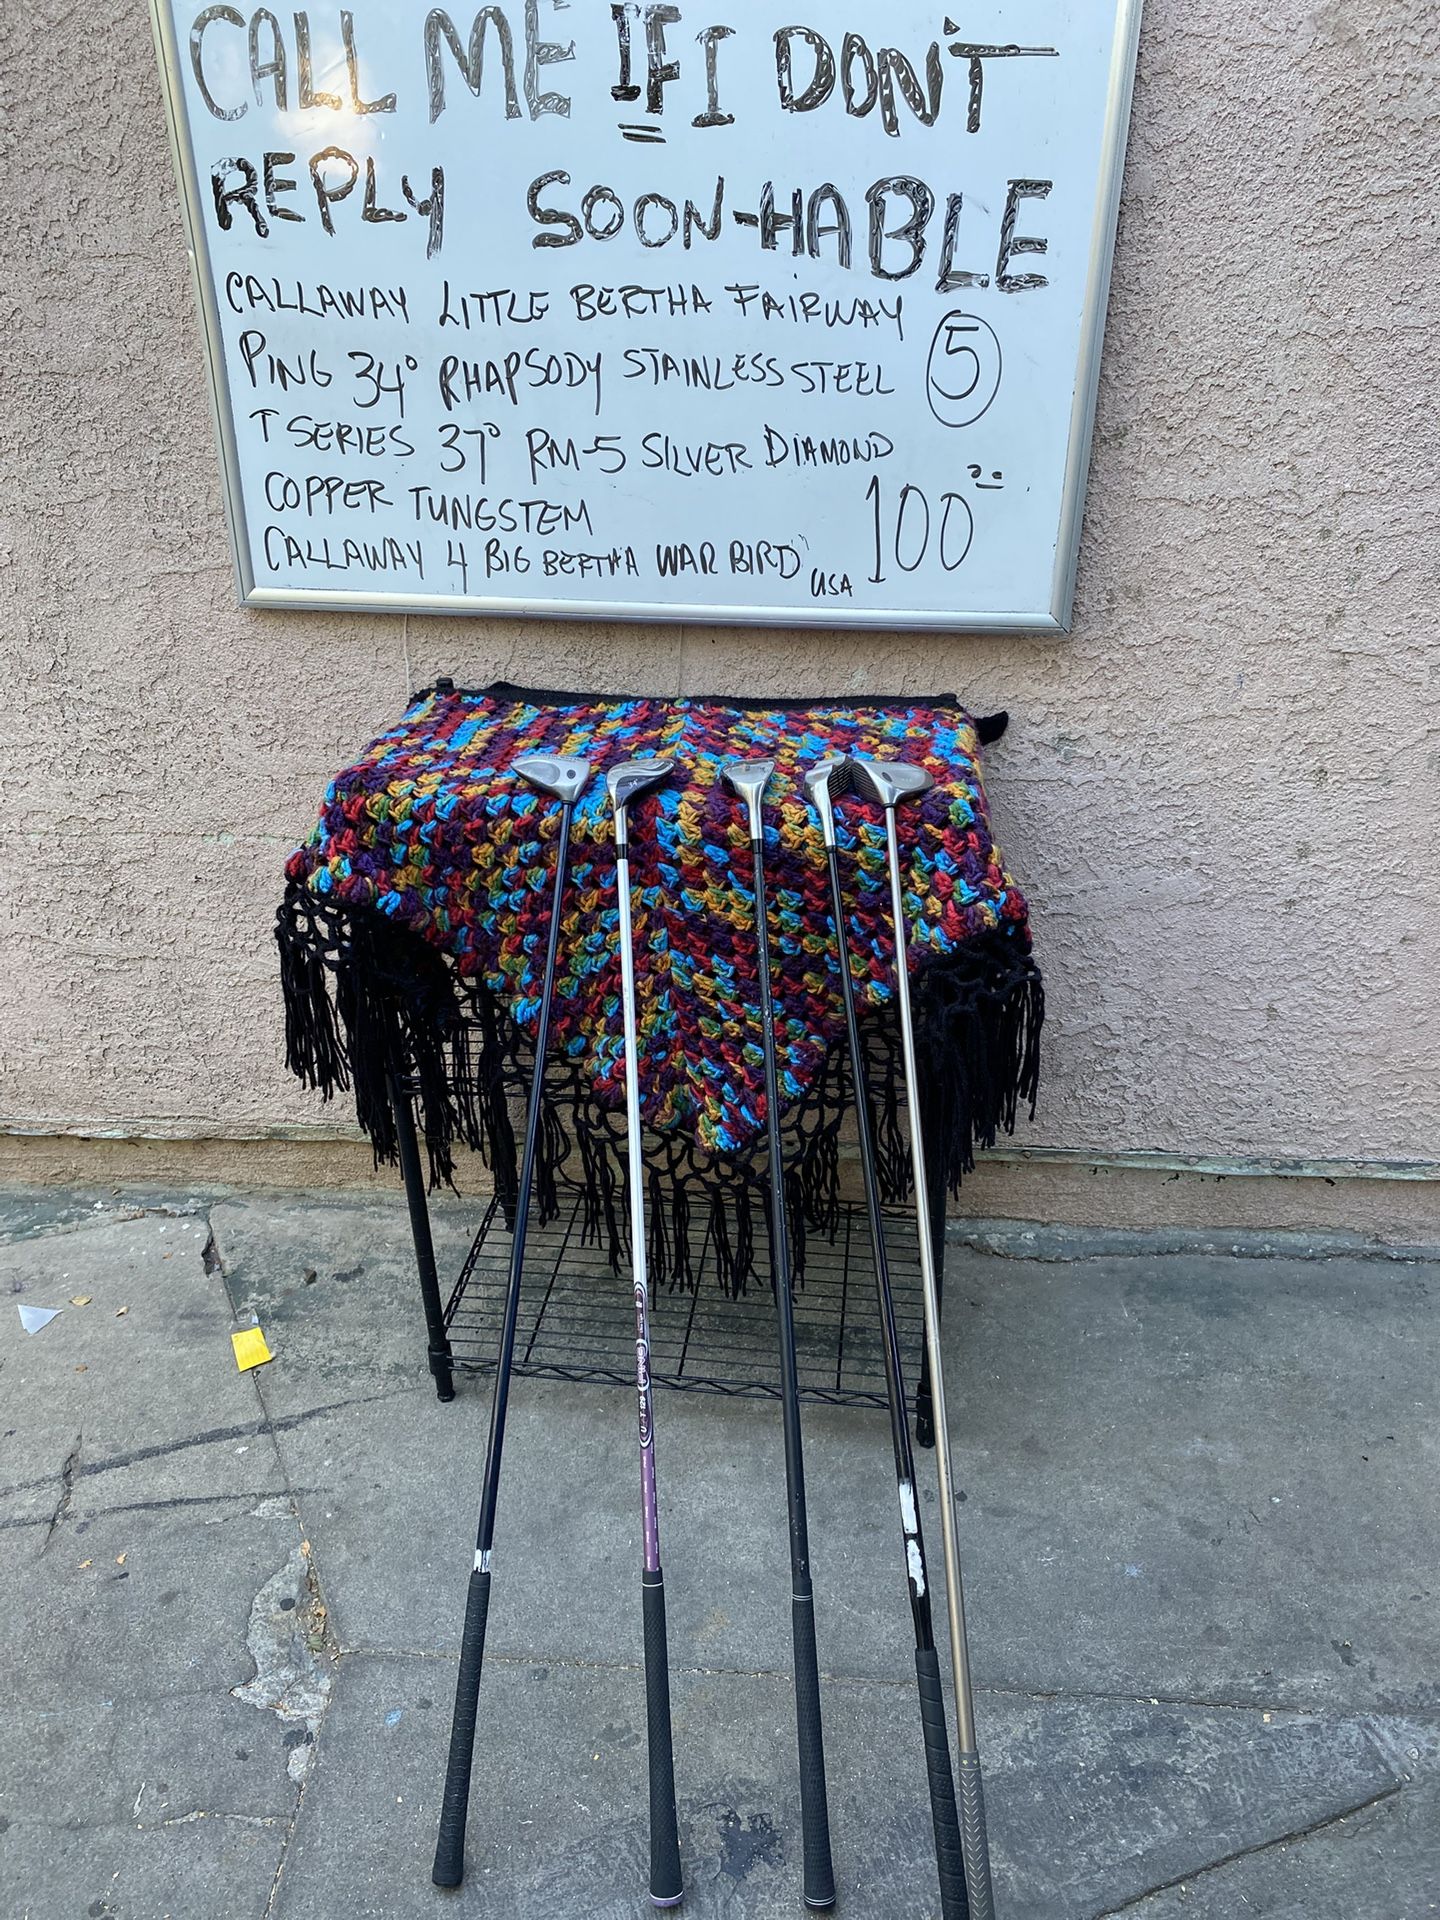 CALL ME IF I DON'T
REPLY SOON-HABLE
CALLAWAY LITTLE BERTHA FAIRWAY
PING 34° RHAPSODY STAINLESS STEEL 5
T SERIES 37° RM-5 SILVER DIAMOND
COPPER TUNGSTEM 100.00
CALLAWAY 4 BIG BERTHA WAR BIRD" USA
34
PING